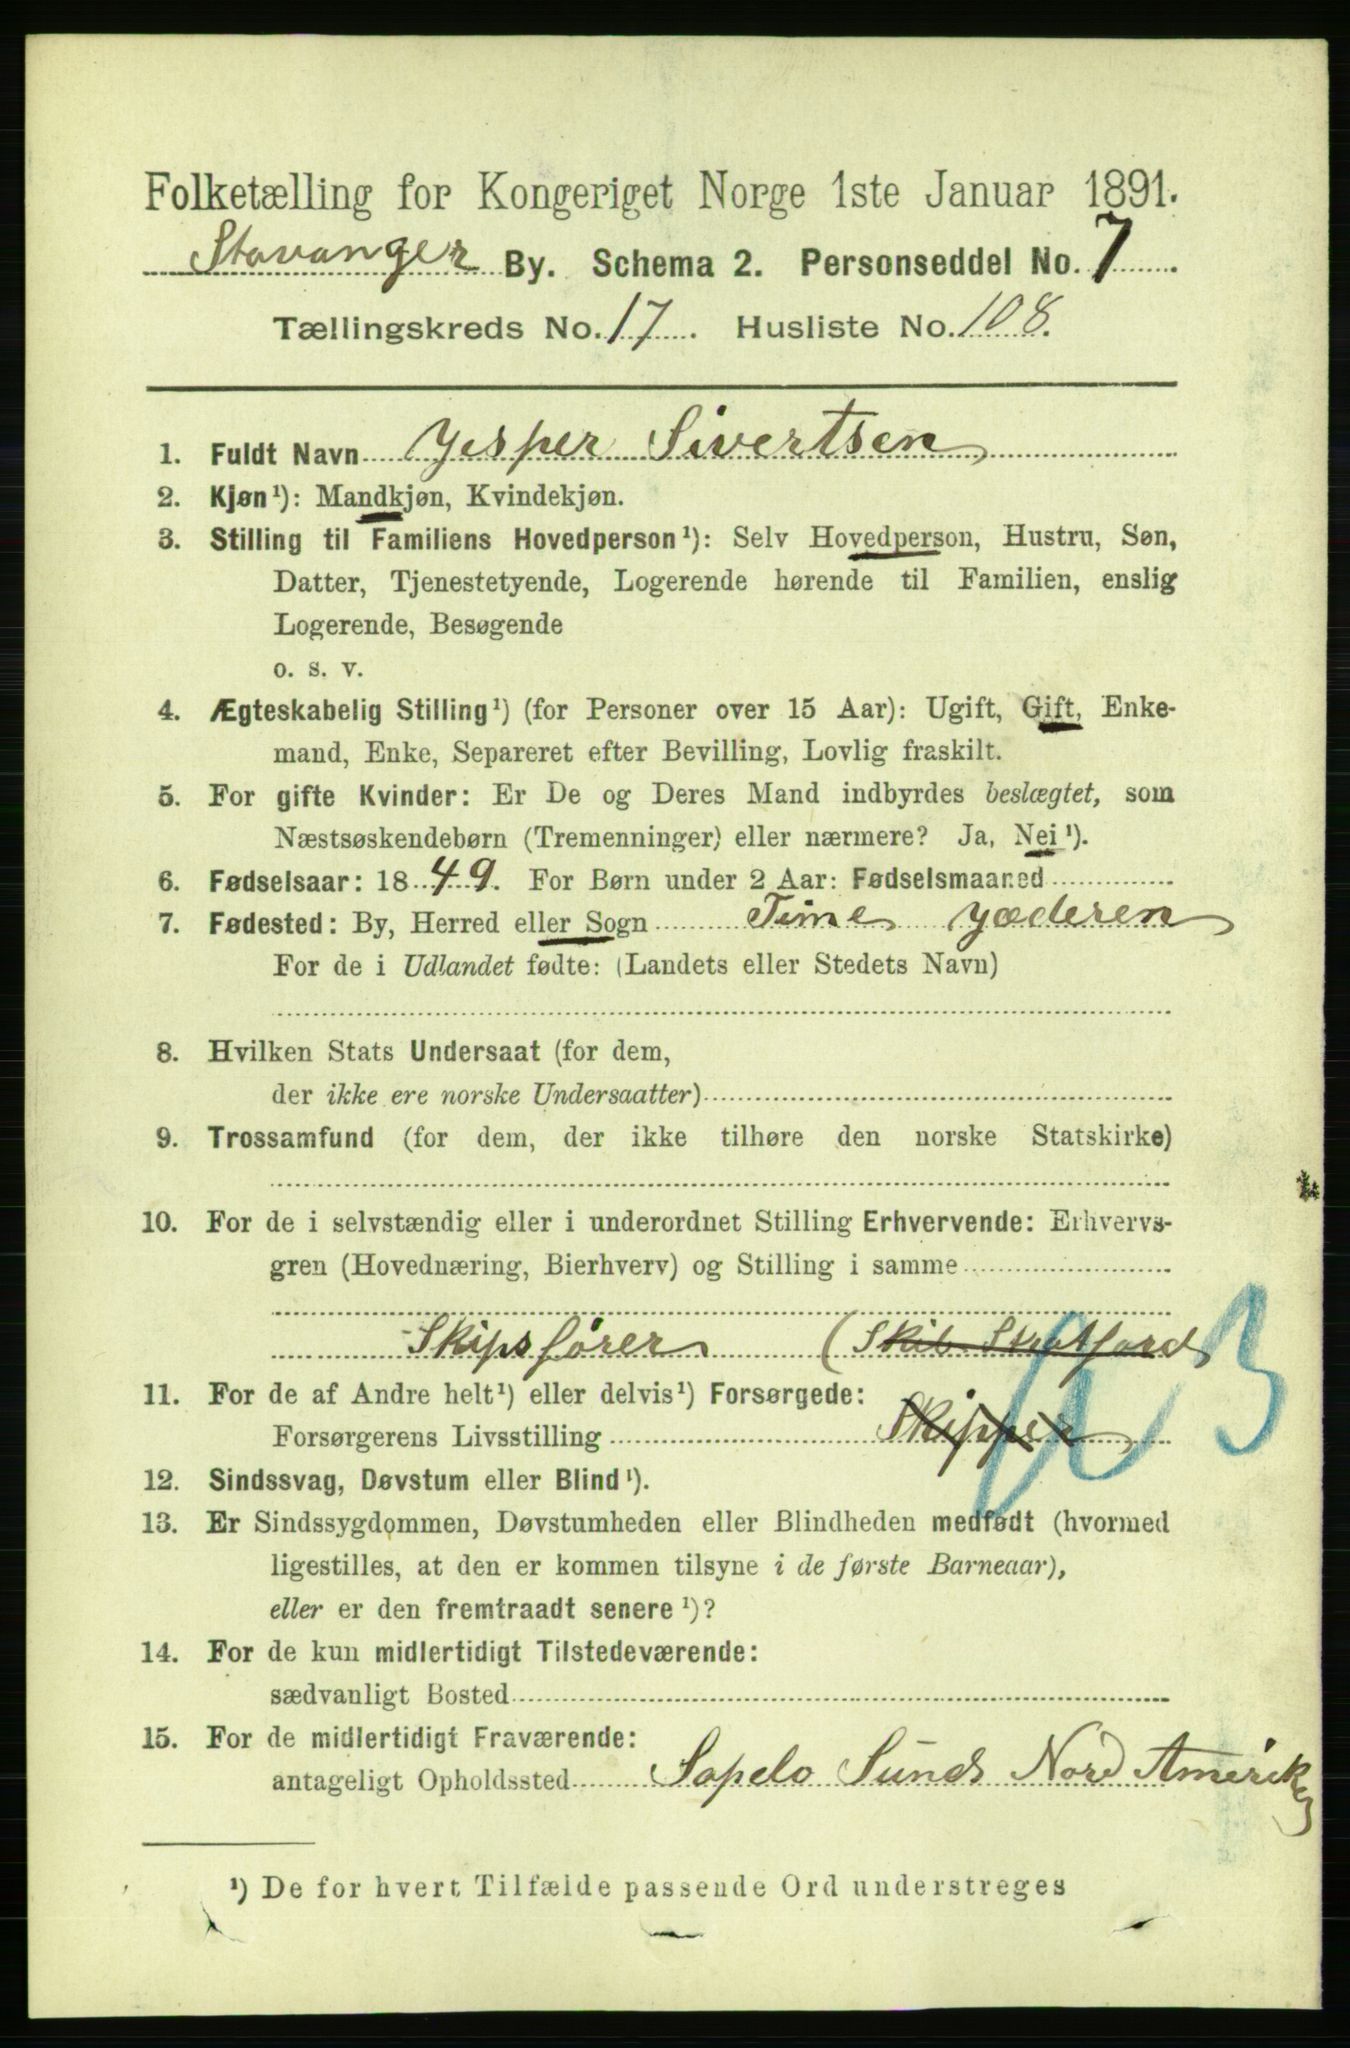 Folketælling for Kongeriget Norge 1ste Januar 1891.
Stavanger By. Schema 2. Personseddel No. 7
Tællingskreds No. 17. Husliste No. 108.
1. Fuldt Navn Yesper Sivertsen
2. Kjøn¹): Mandkjøn, Kvindekjøn.
3. Stilling til Familiens Hovedperson¹): Selv Hovedperson, Hustru, Søn,
Datter, Tjenestetyende, Logerende hørende til Familien, enslig
Logerende, Besøgende
o. s. v.
4. Ægteskabelig Stilling¹) (for Personer over 15 Aar): Ugift, Gift, Enke-
mand, Enke, Separeret efter Bevilling, Lovlig fraskilt.
5. For gifte Kvinder: Er De og Deres Mand indbyrdes beslægtet, som
Næstsøskendebørn (Tremenninger) eller nærmere? Ja, Nei¹).
6. Fødselsaar: 1849. For Børn under 2 Aar: Fødselsmaaned
7. Fødested: By, Herred eller Sogn Time Yæderen
For de i Udlandet fødte: (Landets eller Stedets Navn)
8. Hvilken Stats Undersaat (for dem,
der ikke ere norske Undersaatter)
9. Trossamfund (for dem, der ikke tilhøre den norske Statskirke)
10. For de i selvstændig eller i underordnet Stilling Erhvervende: Erhvervs-
gren (Hovednæring, Bierhverv) og Stilling i samme
Skipsfører (Skib Stratford
11. For de af Andre helt¹) eller delvis¹) Forsørgede:
Forsørgerens Livsstilling Skipper
12. Sindssvag, Døvstum eller Blind¹).
13. Er Sindssygdommen, Døvstumheden eller Blindheden medfødt (hvormed
ligestilles, at den er kommen tilsyne i de første Barneaar),
eller er den fremtraadt senere¹)?
14. For de kun midlertidigt Tilstedeværende:
sædvanligt Bosted
15. For de midlertidigt Fraværende:
antageligt Opholdssted Sapelo Sund Nord Amerika
¹) De for hvert Tilfælde passende Ord understreges